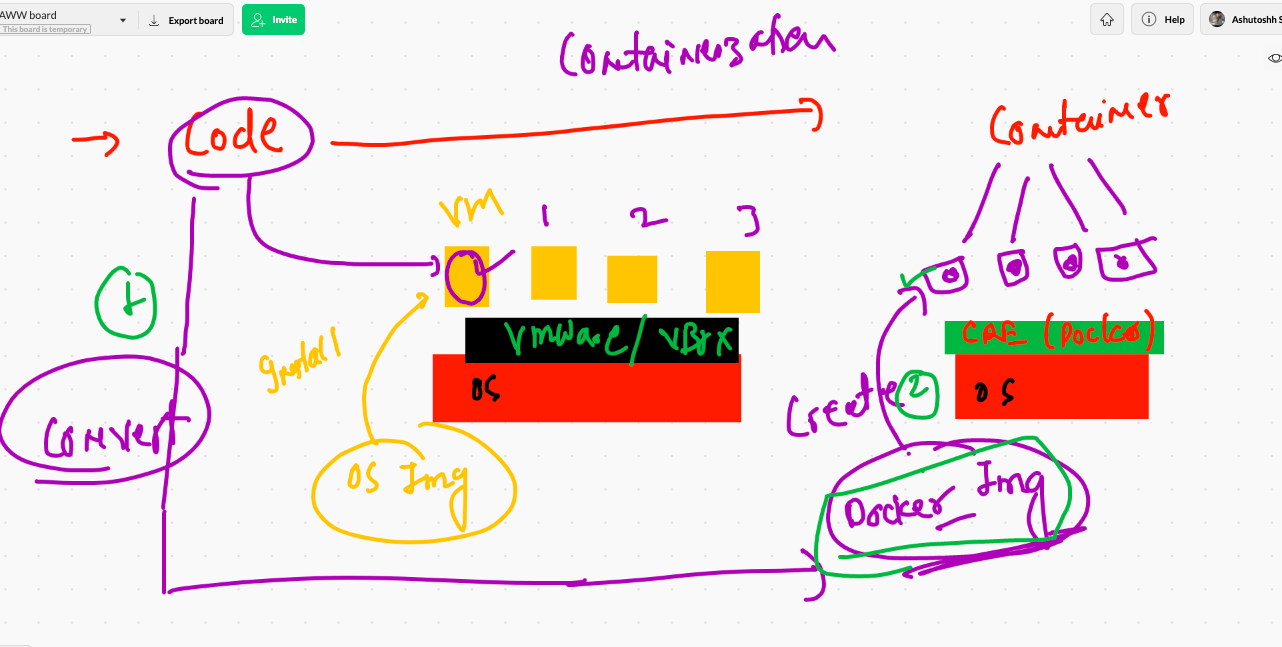 AWW board
This board is temporary
Export board
Invite
Help
Ashutoshh S
Containerization
Code
Container
VM 1 2 3
VMWare / VBox
CRE (Docker)
Install
OS
OS
Create 2
1
Convert
OS Img
Docker Img